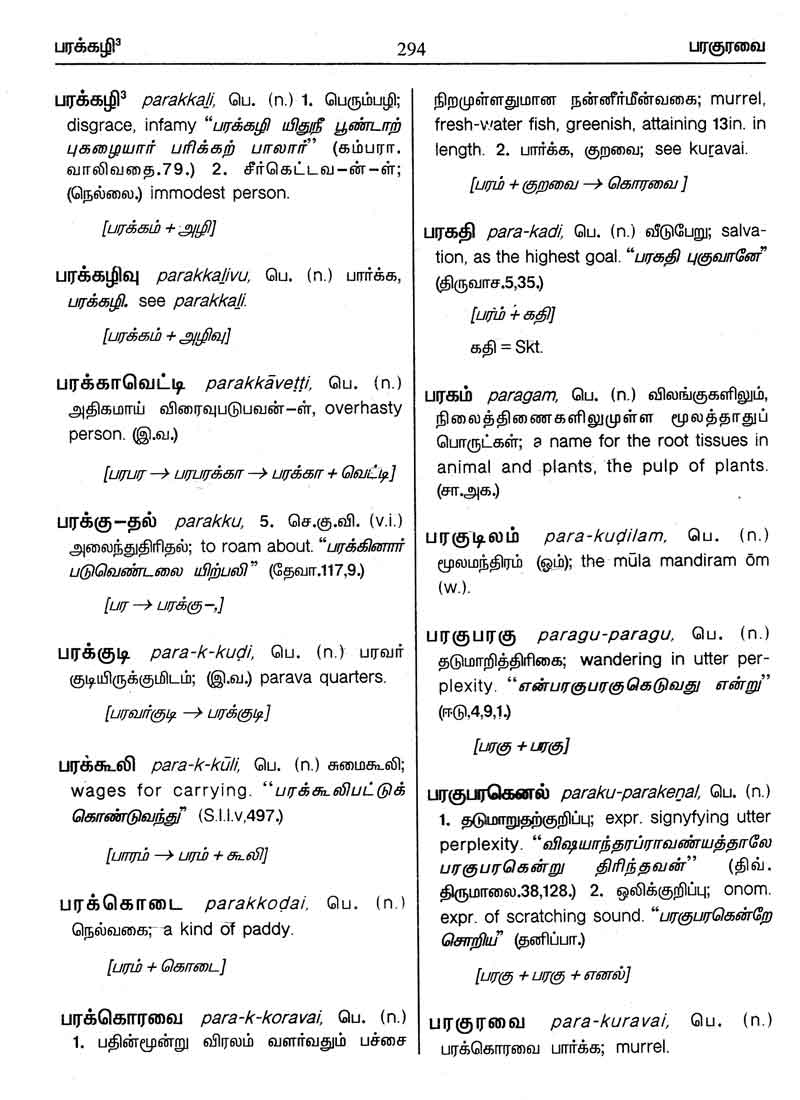 பரக்கழி³
294
பரகுரவை
பரக்கழி³ parakkaḻi, பெ. (n.) 1. பெரும்பழி;
disgrace, infamy “பரக்கழி யிதுநீ பூண்டாற்
புகழையார் பரிக்கற் பாலார்” (கம்பரா.
வாலிவதை.79.) 2. சீர்கெட்டவ-ன்-ள்;
(நெல்லை.) immodest person.
[பரக்கம் + அழி]
பரக்கழிவு parakkaḻivu, பெ. (n.) பார்க்க,
பரக்கழி. see parakkaḻi.
[பரக்கம் + அழிவு]
பரக்காவெட்டி parakkāveṭṭi, பெ. (n.)
அதிகமாய் விரைவுபடுபவன்-ள், overhasty
person. (இ.வ.)
[பரபர → பரபரக்கா → பரக்கா + வெட்டி]
பரக்கு-தல் parakku, 5. செ.கு.வி. (v.i.)
அலைந்துதிரிதல்; to roam about. “பரக்கினார்
படுவெண்டலை யிற்பலி” (தேவா.117,9.)
[பர → பரக்கு-,]
பரக்குடி para-k-kuḍi, பெ. (n.) பரவர்
குடியிருக்குமிடம்; (இ.வ.) parava quarters.
[பரவர்குடி → பரக்குடி]
பரக்கூலி para-k-kūli, பெ. (n.) சுமைகூலி;
wages for carrying. “பரக்கூலிபட்டுக்
கொண்டுவந்து” (S.I.I.v,497.)
[பாரம் → பரம் + கூலி]
பரக்கொடை parakkoḍai, பெ. (n.)
நெல்வகை; a kind of paddy.
[பரம் + கொடை]
பரக்கொரவை para-k-koravai, பெ. (n.)
1. பதின்மூன்று விரலம் வளர்வதும் பச்சை
நிறமுள்ளதுமான நன்னீர்மீன்வகை; murrel,
fresh-water fish, greenish, attaining 13in. in
length. 2. பார்க்க, குறவை; see kuṟavai.
[பரம் + குறவை → கொரவை]
பரகதி para-kadi, பெ. (n.) வீடுபேறு; salva-
tion, as the highest goal. “பரகதி புகுவானே”
(திருவாச.5,35.)
[பர்ம் + கதி]
கதி = Skt.
பரகம் paragam, பெ. (n.) விலங்குகளிலும்,
நிலைத்திணைகளிலுமுள்ள மூலத்தாதுப்
பொருட்கள்; a name for the root tissues in
animal and plants, the pulp of plants.
(சா.அக.)
பரகுடிலம் para-kuḍilam, பெ. (n.)
மூலமந்திரம் (ஓம்); the mūla mandiram ōm
(w.).
பரகுபரகு paragu-paragu, பெ. (n.)
தடுமாறித்திரிகை; wandering in utter per-
plexity. “என்பரகுபரகுகெடுவது என்று”
(ஈடு,4,9,1.)
[பரகு + பரகு]
பரகுபரகெனல் paraku-parakeṉal, பெ. (n.)
1. தடுமாறுதற்குறிப்பு; expr. signyfying utter
perplexity. “விஷயாந்தரப்ராவண்யத்தாலே
பரகுபரகென்று திரிந்தவன்” (திவ்.
திருமாலை.38,128.) 2. ஒலிக்குறிப்பு; onom.
expr. of scratching sound. “பரகுபரகென்றே
சொறிய” (தனிப்பா.)
[பரகு + பரகு + எனல்]
பரகுரவை para-kuravai, பெ. (n.)
பரக்கொரவை பார்க்க; murrel.